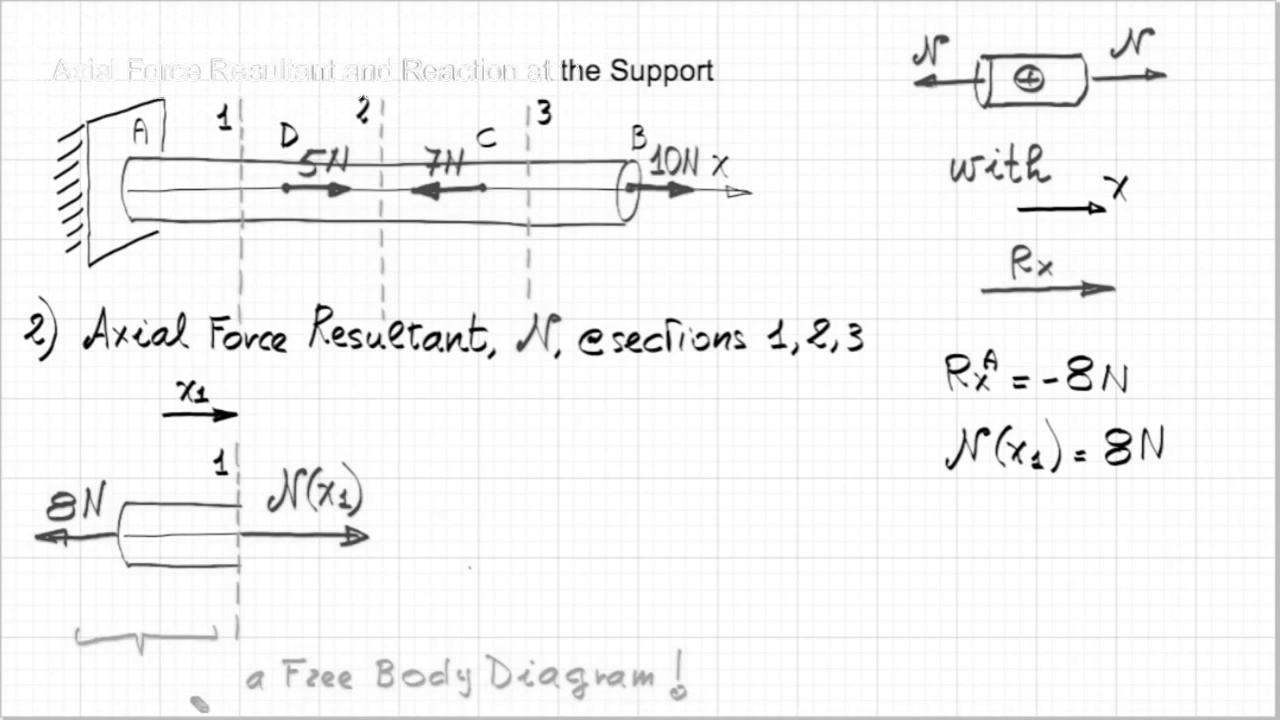 Axial Force Resultant and Reaction at the Support
A 1 D 5N 2 7N C 3 B 10N x
2) Axial Force Resultant, N, @sections 1,2,3
x1
1
8N N(x1)
a Free Body Diagram!
N N
+
with
x
Rx
RxA = -8N
N(x1) = 8N